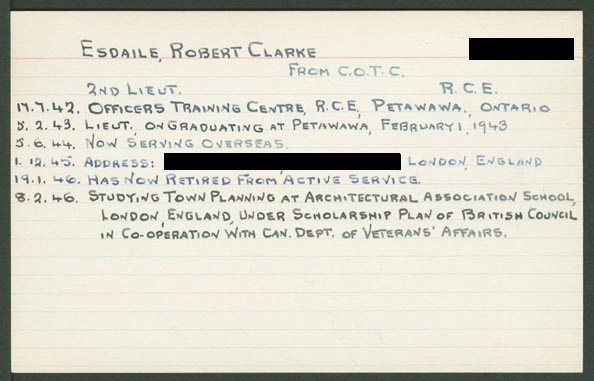 ESDAILE, ROBERT CLARKE
FROM C.O.T.C.
2ND LIEUT. R.C.E.
17.7.42. OFFICERS TRAINING CENTRE, R.C.E., PETAWAWA, ONTARIO
5.2.43. LIEUT, ON GRADUATING AT PETAWAWA, FEBRUARY 1, 1943
5.6.44. NOW SERVING OVERSEAS.
1.12.45. ADDRESS: LONDON, ENGLAND
19.1.46. HAS NOW RETIRED FROM ACTIVE SERVICE.
8.2.46. STUDYING TOWN PLANNING AT ARCHITECTURAL ASSOCIATION SCHOOL,
LONDON, ENGLAND, UNDER SCHOLARSHIP PLAN OF BRITISH COUNCIL
IN CO-OPERATION WITH CAN. DEPT. OF VETERANS' AFFAIRS.